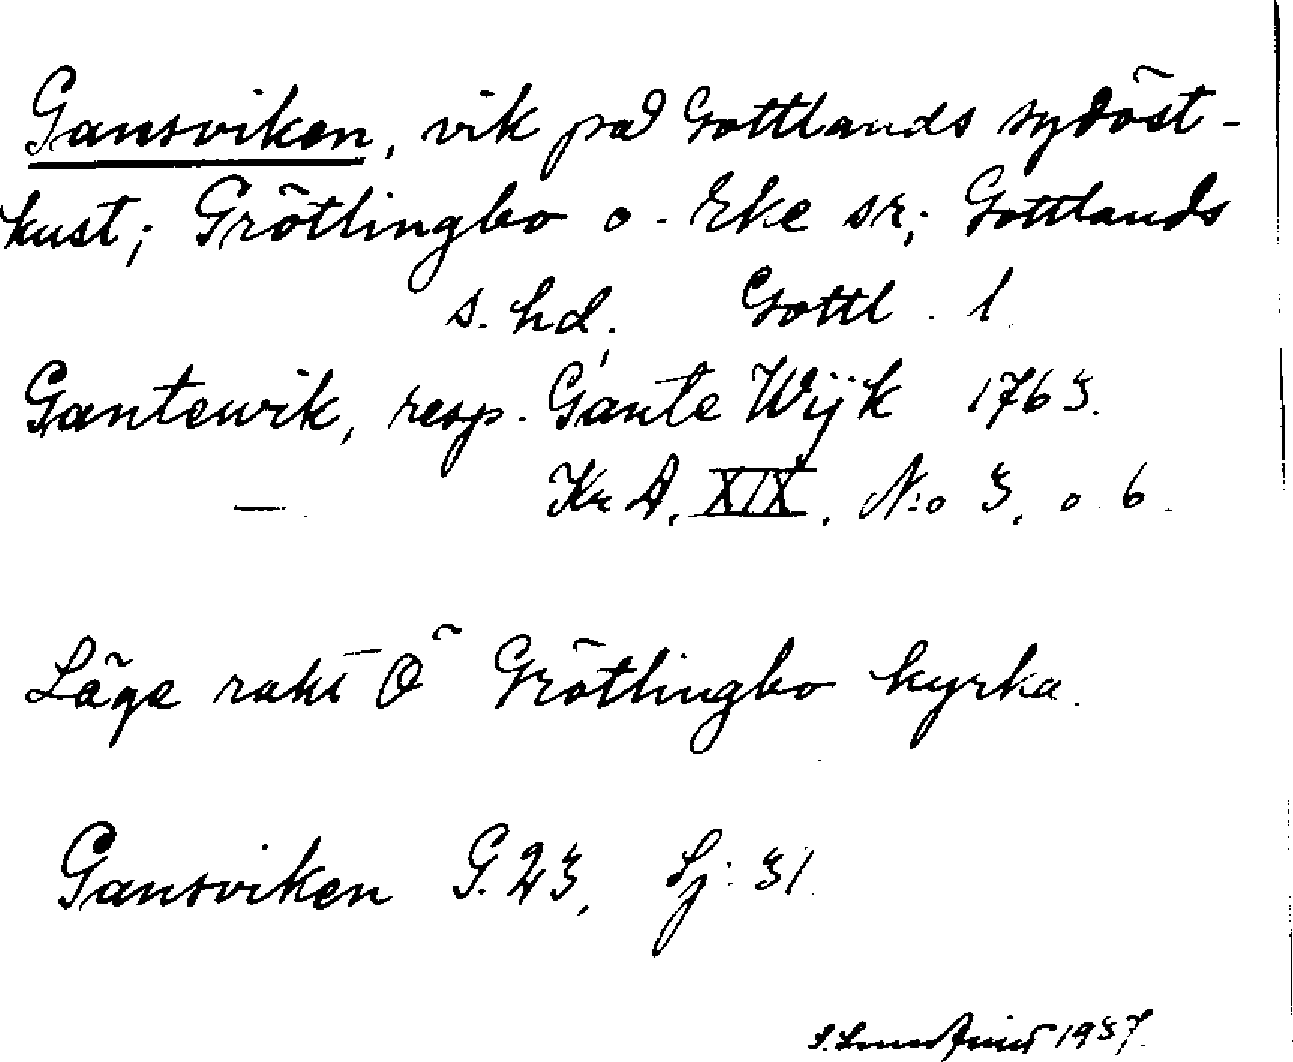 Gansviken, vik på Gottlands sydöst-
kust; Grötlingbo o. Eke sr; Gottlands
s. hd. Gottl. l.
Gantewik, resp. Gante Wijk 1763.
— Kr A, XIX, N:o 3, o 6.
Läge rakt Ö Grötlingbo kyrka.
Gansviken G. 23, Sj: 31.
1937.